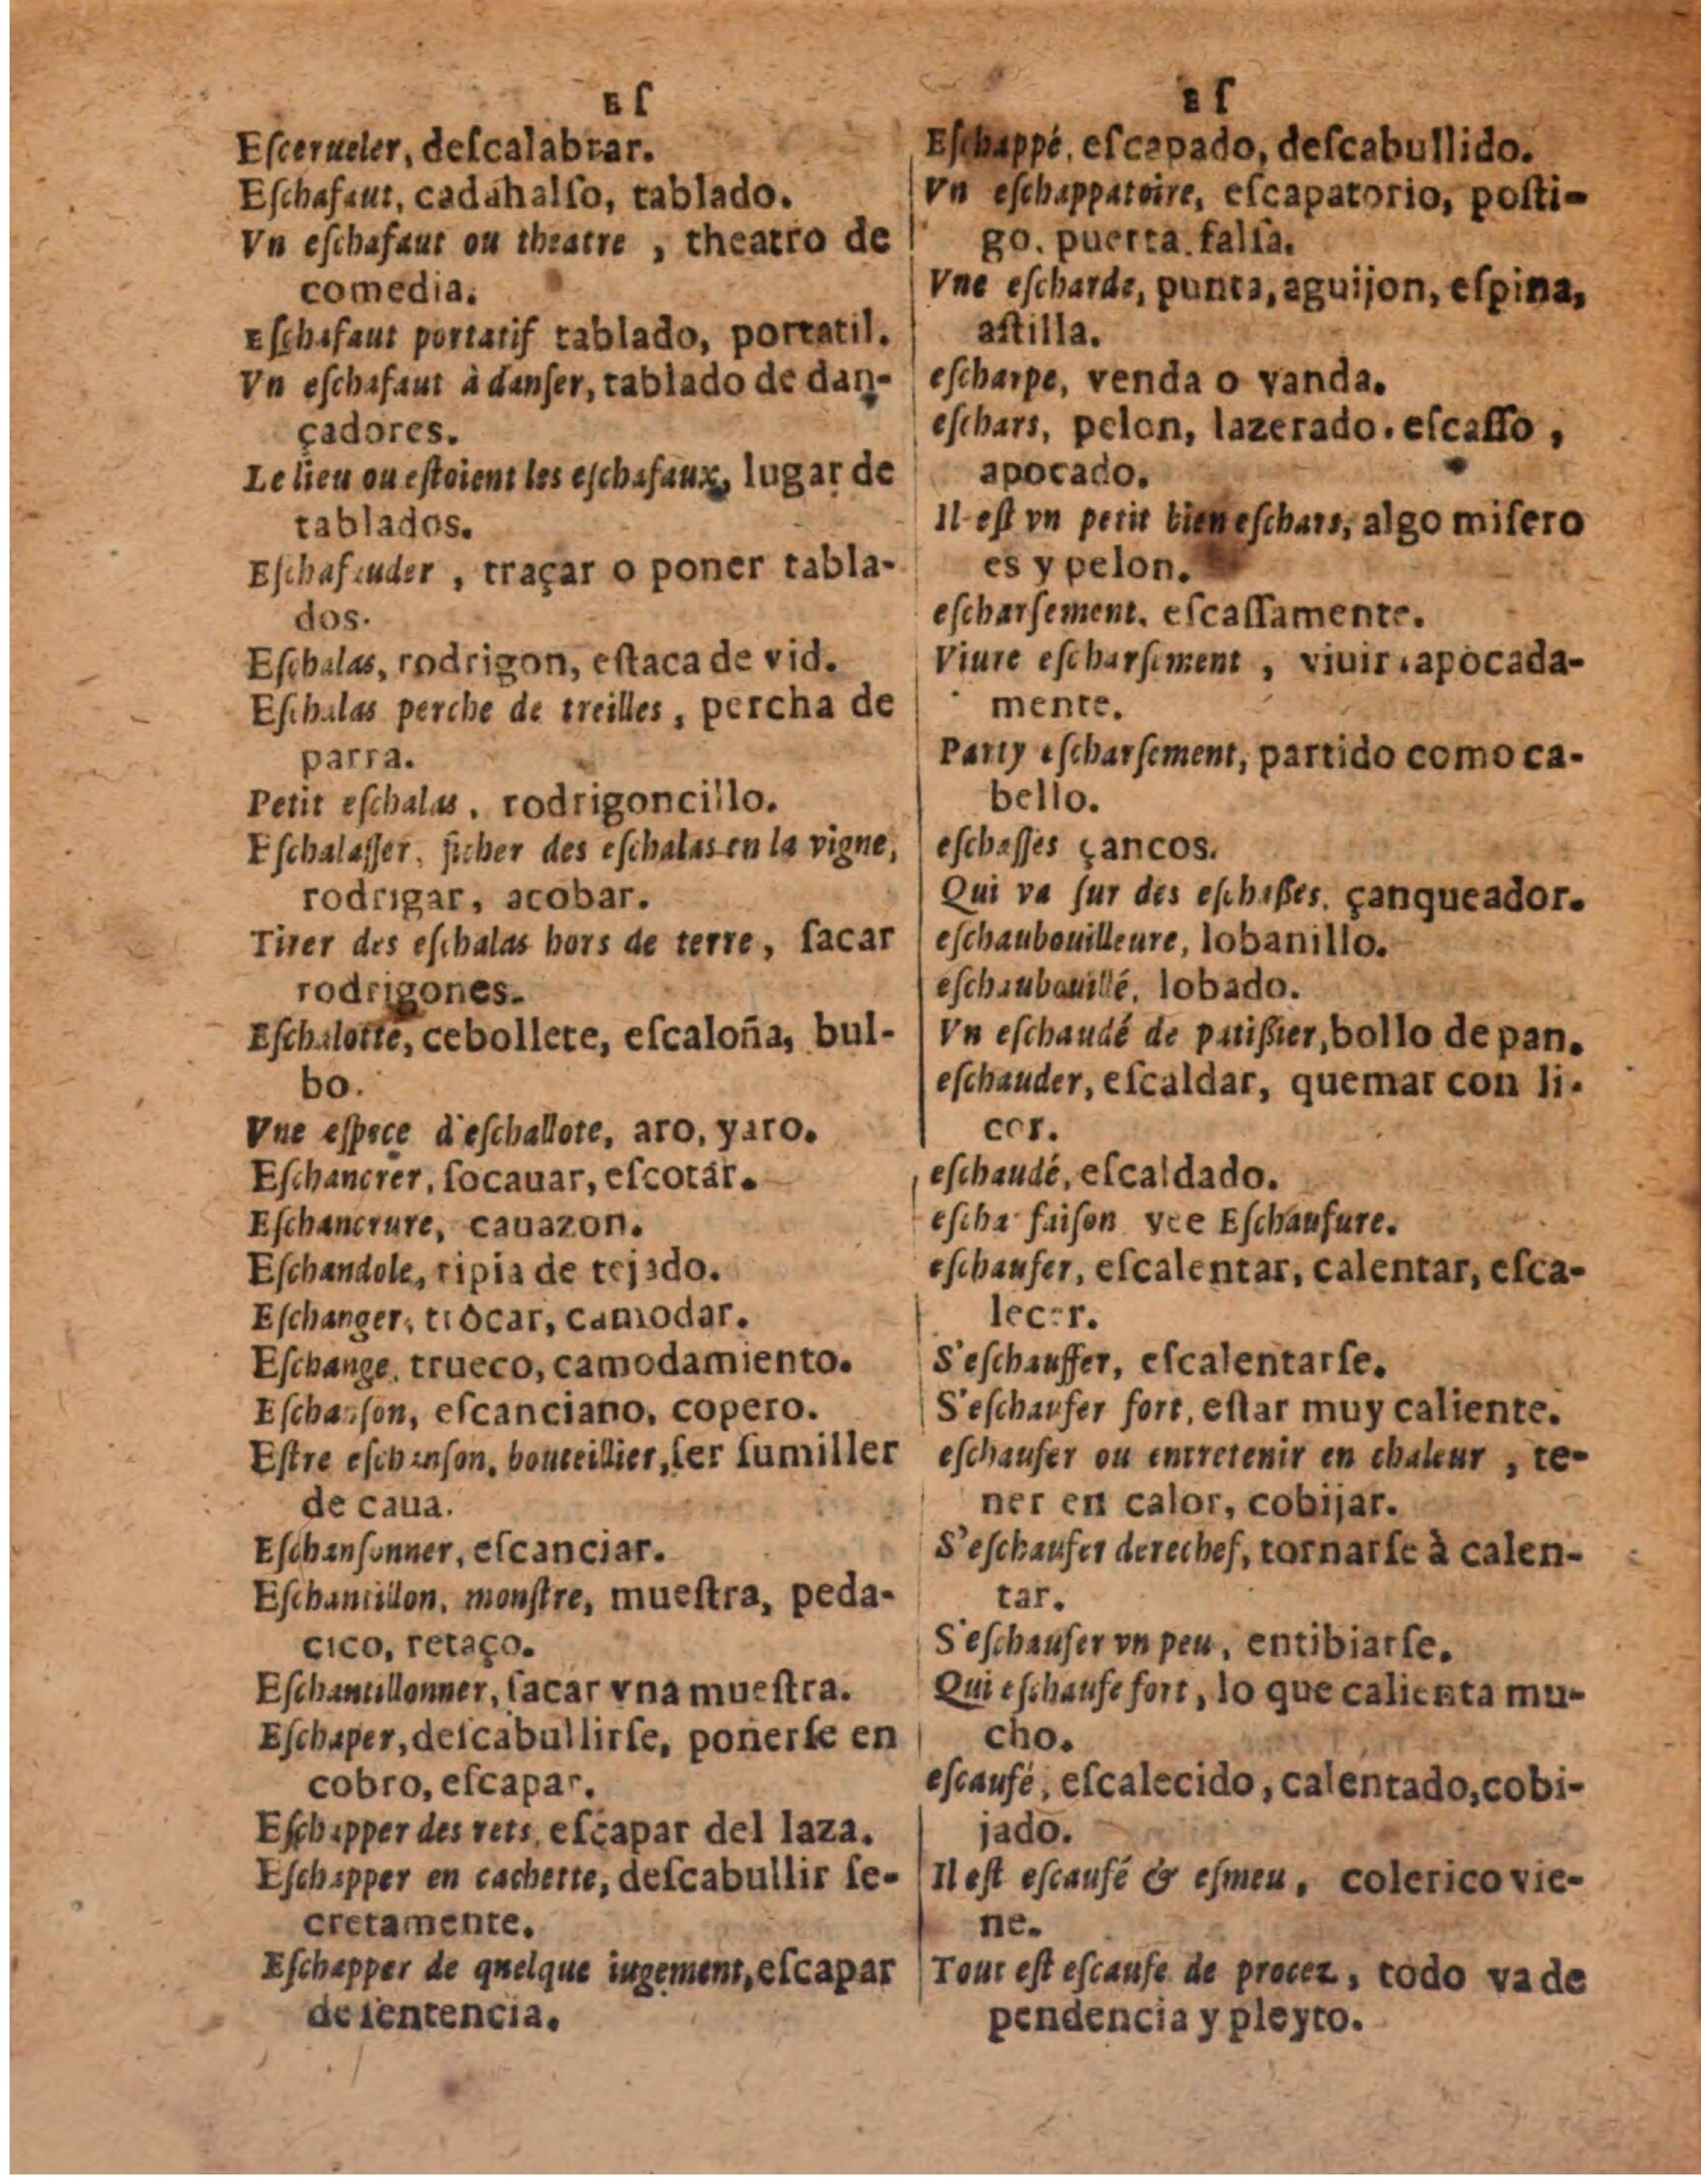 Eſ
Eſcerueler, deſcalabrar.
Eſchafaut, cadahalſo, tablado.
Vn eſchafaut ou theatre , theatro de
comedia.
Eſchafaut portatif tablado, portatil.
Vn eſchafaut à danſer, tablado de dan-
çadores.
Le lieu ou eſtoient les eſchafaux, lugar de
tablados.
Eſchafauder , traçar o poner tabla-
dos.
Eſchalas, rodrigon, eſtaca de vid.
Eſchalas perche de treilles , percha de
parra.
Petit eſchalas , rodrigoncillo.
Eſchalaſſer, ficher des eſchalas en la vigne,
rodrigar, acobar.
Tirer des eſchalas hors de terre, ſacar
rodrigones.
Eſchalotte, cebollete, eſcaloña, bul-
bo.
Vne eſpece d'eſchallote, aro, yaro.
Eſchancrer, ſocauar, eſcotar.
Eſchancrure, cauazon.
Eſchandole, ripia de tejado.
Eſchanger, trocar, camodar.
Eſchange, trueco, camodamiento.
Eſchanſon, eſcanciano, copero.
Eſtre eſchanſon, bouteillier, ſer ſumiller
de caua.
Eſchanſonner, eſcanciar.
Eſchantillon, monſtre, mueſtra, peda-
cico, retaço.
Eſchantillonner, ſacar vna mueſtra.
Eſchaper, deſcabullirſe, ponerſe en
cobro, eſcapar.
Eſchapper des rets, eſcapar del laza.
Eſchapper en cachette, deſcabullir ſe-
cretamente.
Eſchapper de quelque iugement, eſcapar
de ſentencia.
Eſ
Eſchappé, eſcapado, deſcabullido.
Vn eſchappatoire, eſcapatorio, poſti-
go. puerta falſa.
Vne eſcharde, punta, aguijon, eſpina,
aſtilla.
eſcharpe, venda o vanda.
eſchars, pelon, lazerado. eſcaſſo ,
apocado.
Il eſt vn petit bien eſchars, algo miſero
es y pelon.
eſcharſement. eſcaſſamente.
Viure eſcharſement , viuir apocada-
mente.
Party eſcharſement, partido como ca-
bello.
eſchaſſes çancos.
Qui va ſur des eſchaßes. çanqueador.
eſchaubouilleure, lobanillo.
eſchaubouillé, lobado.
Vn eſchaudé de patißier, bollo de pan.
eſchauder, eſcaldar, quemar con li-
cor.
eſchaudé, eſcaldado.
faiſon vee Eſchaufure.
eſchaufer, eſcalentar, calentar, eſca-
lecer.
S'eſchauffer, eſcalentarſe.
S'eſchaufer fort, eſtar muy caliente.
eſchaufer ou entretenir en chaleur , te-
ner en calor, cobijar.
S'eſchaufer derechef, tornarſe à calen-
tar.
S'eſchaufer vn peu, entibiarſe.
Qui eſchaufe fort, lo que calienta mu-
cho.
eſcaufé, eſcalecido, calentado, cobi-
jado.
Il eſt eſcaufé & eſmeu, colerico vie-
ne.
Tout eſt eſcaufe de procez, todo va de
pendencia y pleyto.